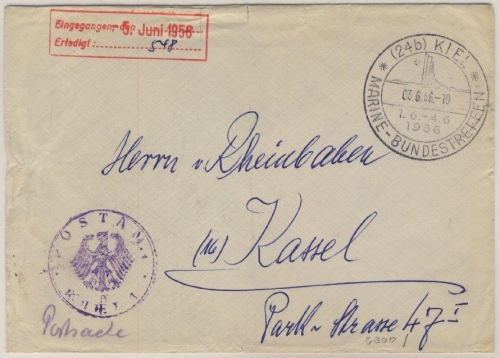 Eingegangen: den 5. Juni 1956
Erledigt: 548
(24b) KIEL
03.6.56.-10
1.6.-4.6
1956
MARINE-BUNDESTREFFEN
Herrn v. Rheinbaben
(16) Kassel
Park-Strasse 47 I
POSTAMT
KIEL 1
Postsache